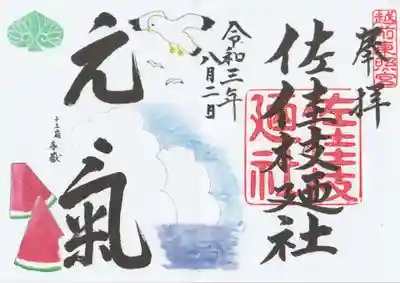 越前東照宮
奉拝
佐佳枝廼社
佐佳枝
廼社
令和三年
八月二日
元氣
十三歳